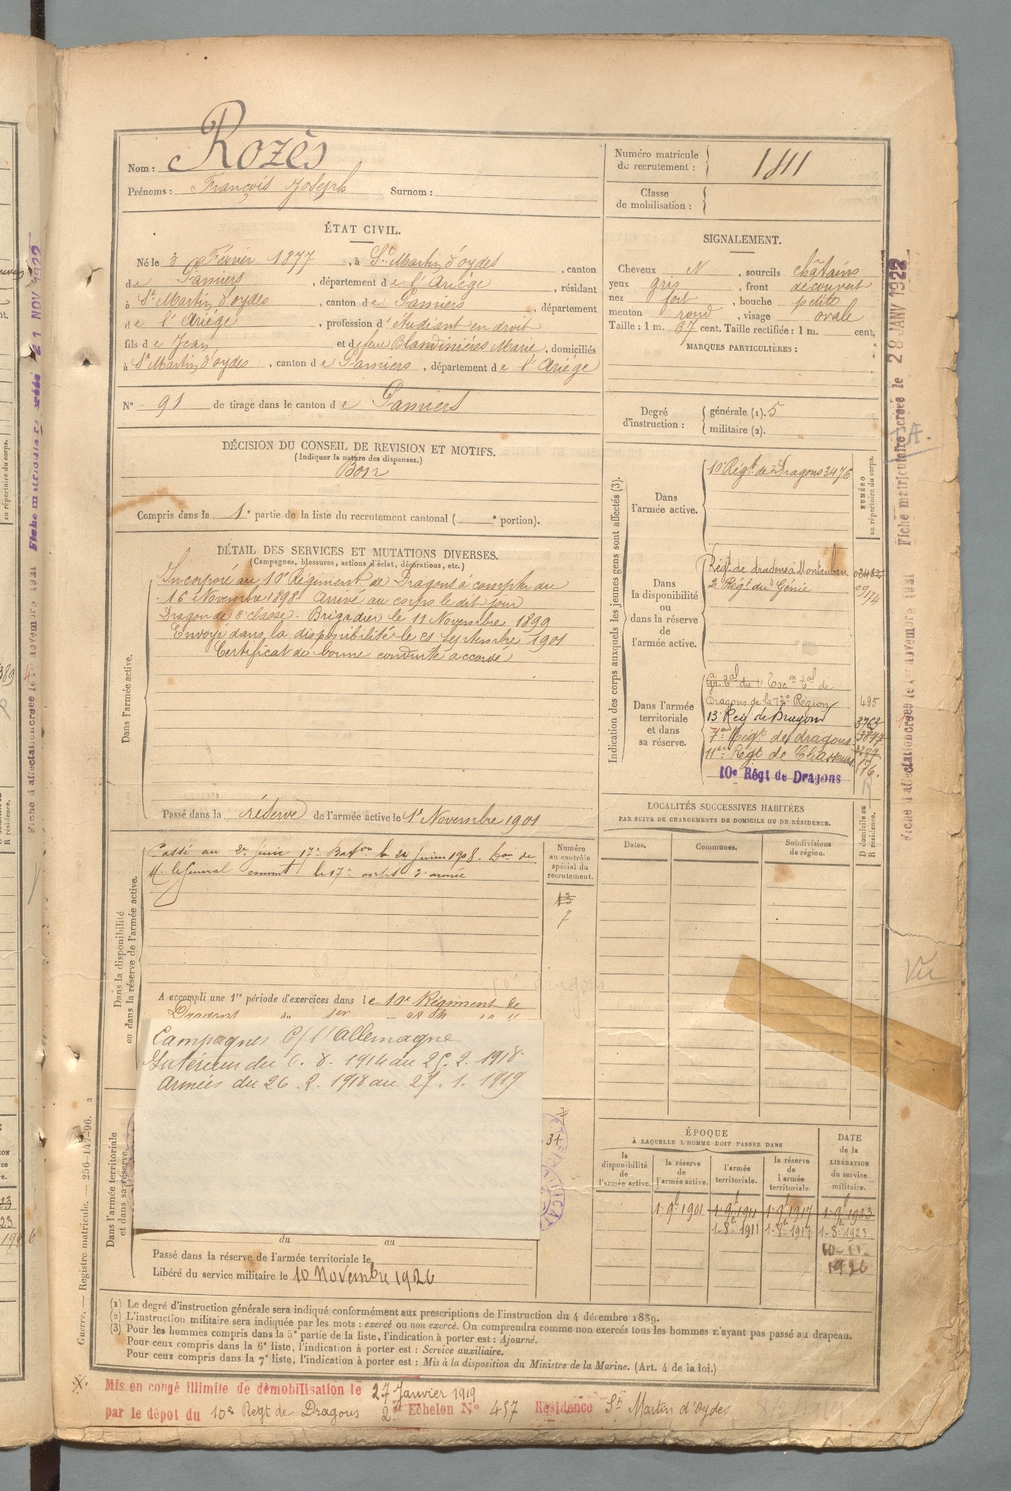 Nom : Rozès
Prénoms : François Joseph Surnom :
Numéro matricule du recrutement : 1811
Classe de mobilisation :
ÉTAT CIVIL.
Né le 3 Février 1877, à St Martin d'oydes, canton
de Pamiers, département de l'Ariège, résidant
à St Martin d'oydes, canton de Pamiers, département
de l'Ariège, profession d'étudiant en droit
fils de Jean et de feue Blandinières Marie, domiciliés
à St Martin d'oydes, canton de Pamiers, département de l'Ariège
N° 91 de tirage dans le canton de Pamiers
SIGNALEMENT.
Cheveux N, sourcils châtains
yeux gris, front découvert
nez fort, bouche petite
menton rond, visage ovale
Taille : 1 m. 67 cent. Taille rectifiée : 1 m. cent.
MARQUES PARTICULIÈRES :
Degré d'instruction : générale (1). 5
militaire (2).
DÉCISION DU CONSEIL DE REVISION ET MOTIFS.
(Indiquer la nature des dispenses.)
Bon
Compris dans la 1e partie de la liste du recrutement cantonal ( e portion).
DÉTAIL DES SERVICES ET MUTATIONS DIVERSES.
(Campagnes, blessures, actions d'éclat, décorations, etc.)
Dans l'armée active.
Incorporé au 10e Régiment de Dragons à compter du
16 Novembre 1898. Arrivé au corps le dit jour
Dragon de 2e classe. Brigadier le 11 Novembre 1899
Envoyé dans la disponibilité le 21 Septembre 1901
Certificat de bonne conduite accordé
Passé dans la réserve de l'armée active le 1er Novembre 1901
Indication des corps auxquels les jeunes gens sont affectés (3).
NUMÉRO au répertoire du corps.
Dans l'armée active.
10e Régt de Dragons 3476
Dans la disponibilité ou dans la réserve de l'armée active.
Régt de dragons à Montauban
2e Régt du Génie
Dans l'armée territoriale et dans sa réserve.
Dragons de la 17e Région 495
13e Reg de Dragons 3763
7e Régt de dragons
11e Regt de Chasseurs
176.
10e Régt de Dragons
LOCALITÉS SUCCESSIVES HABITÉES
PAR SUITE DE CHANGEMENTS DE DOMICILE OU DE RÉSIDENCE.
Dates. Communes. Subdivisions de région. D domicile ou R résidence.
Dans la disponibilité ou dans la réserve de l'armée active.
Numéro au contrôle spécial du recrutement.
Passé au 2e Génie 17e Batton le 24 Juin 1908. Don de
M. le Général Commt le 17e corps
A accompli une 1re période d'exercices dans le 10e Régiment de
Dragons du 1er
Campagnes C/ l'allemagne
Intérieur du 6. 8. 1914 au 25. 2. 1918
Armées du 26. 2. 1918 au 27. 1. 1919
Dans l'armée territoriale et dans sa réserve.
du au
Passé dans la réserve de l'armée territoriale le
Libéré du service militaire le 10 Novembre 1926
ÉPOQUE
À LAQUELLE L'HOMME DOIT PASSER DANS
la disponibilité de l'armée active. la réserve de l'armée active. l'armée territoriale. la réserve de l'armée territoriale.
DATE de la LIBÉRATION du service militaire.
1-9e 1901 1-9e 1911 1-9e 1917 1-9e 1923
1-8e 1911 1-8e 1917 1-8-1923
10-11-1926
(1) Le degré d'instruction générale sera indiqué conformément aux prescriptions de l'instruction du 4 décembre 1889.
(2) L'instruction militaire sera indiquée par les mots : exercé ou non exercé. On comprendra comme non exercés tous les hommes n'ayant pas passé au drapeau.
(3) Pour les hommes compris dans la 5e partie de la liste, l'indication à porter est : Ajourné.
Pour ceux compris dans la 6e liste, l'indication à porter est : Service auxiliaire.
Pour ceux compris dans la 7e liste, l'indication à porter est : Mis à la disposition du Ministre de la Marine. (Art. 4 de la loi.)
Mis en congé illimité de démobilisation le 27 Janvier 1919
par le dépot du 10e Regt de Dragons 2e Echelon N° 457 Résidence St Martin d'Oydes
Guerre. — Registre matricule. — 256-147-96.
Fiche matriculaire créée le 28 JANV 1922
Vu